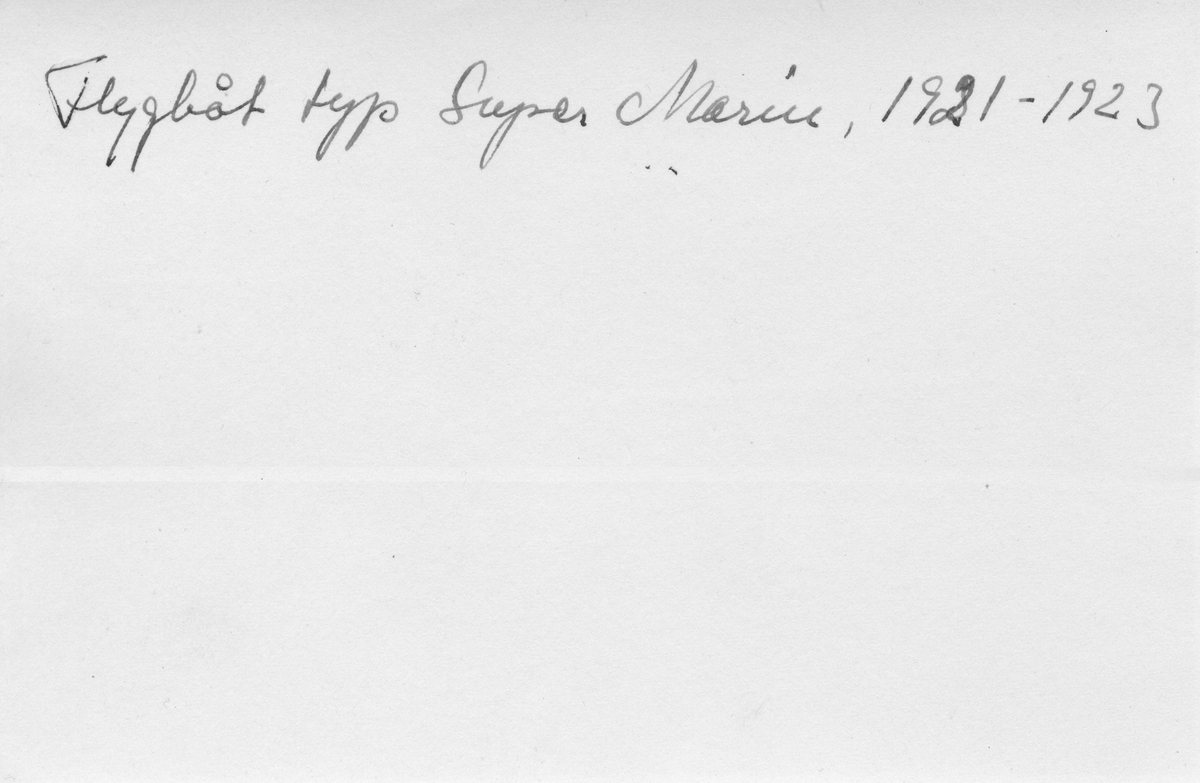 Flygbåt typ Super Marin, 1921-1923